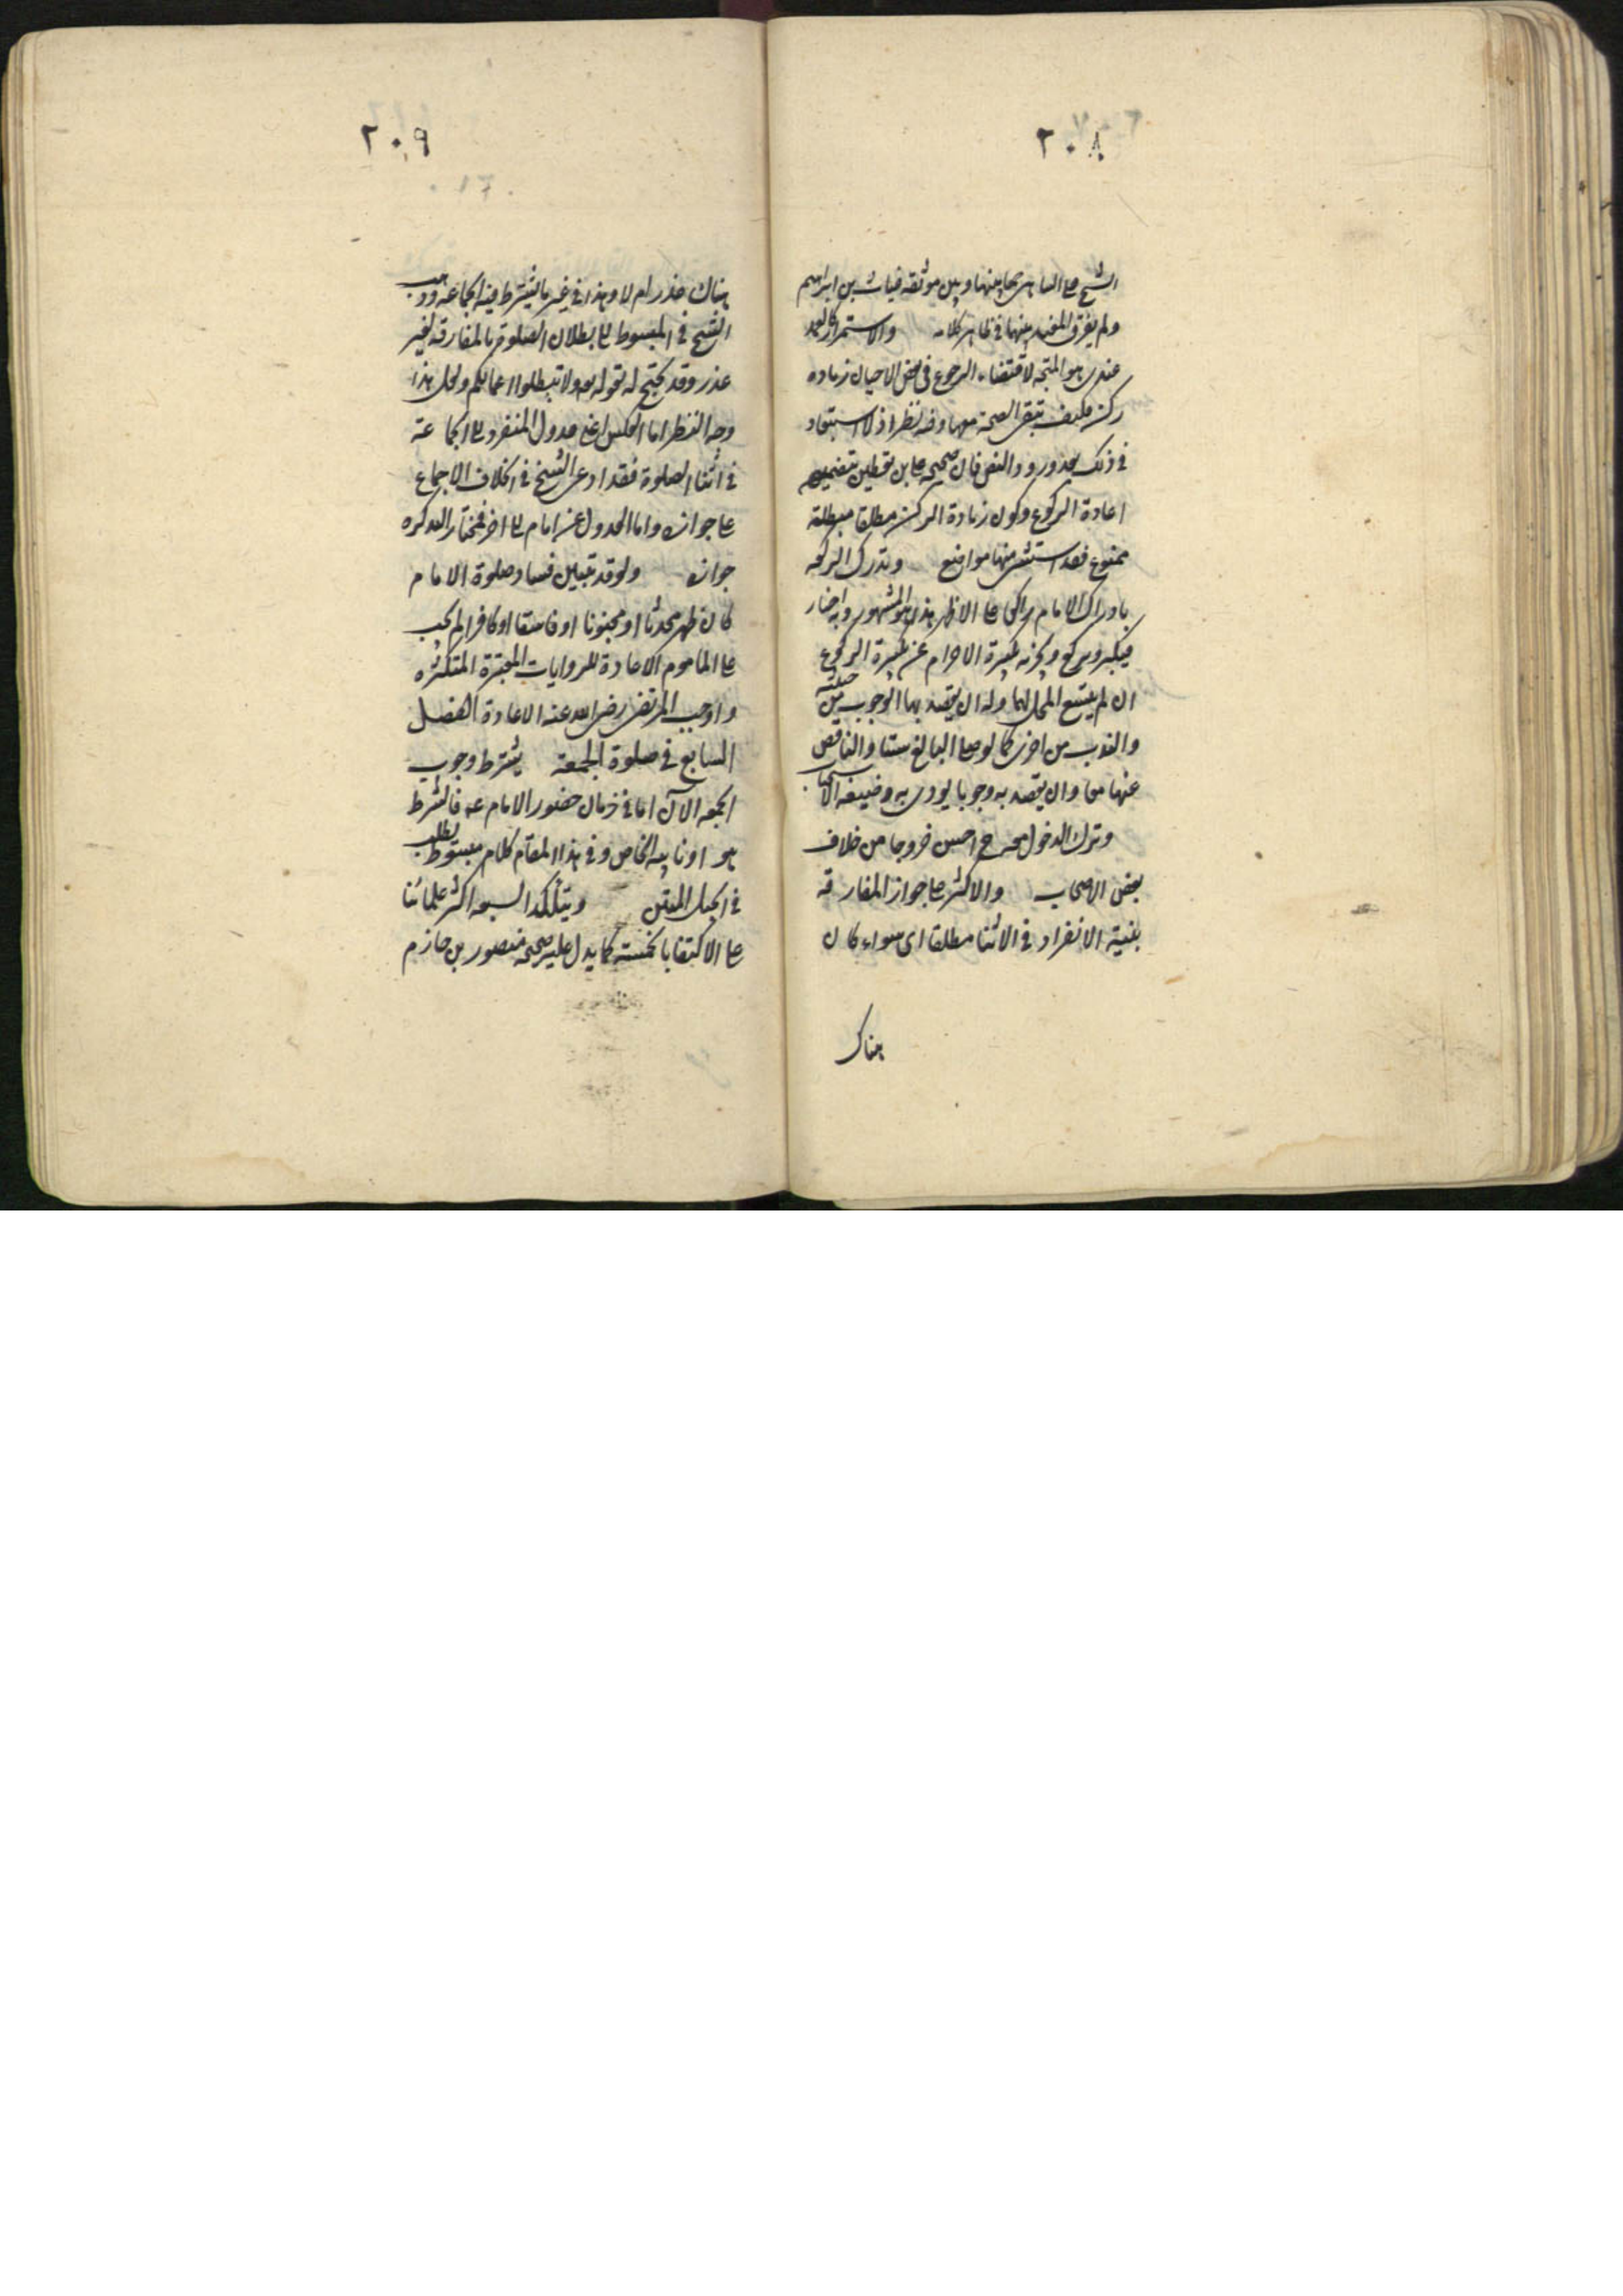 ٢٠٨
الشيخ على الساهي جمعا بينها وبين موثقة غياث بن ابراهيم
ولم يفرق المفيد بينهما في ظاهر كلامه والاستمرار كالعمد
عندي هو المتجه لاقتضاء الرجوع في بعض الاحيان زياده
ركن فكيف تبقى الصحة معها وفيه نظر اذ لا استبعاد
في ذلك بعد ورود النص فان صحيحه علي بن يقطين تتضمن
اعادة الركوع وكون زيادة الركن مطلقا مبطلة
ممنوع فقد استثنى منها مواضع وتدرك الركعه
بادراك الامام راكعا على الاظهر هذا هو المشهور وبه اخبار
فيكبر ويركع ويجزيه تكبيرة الاحرام عن تكبيرة الركوع
ان لم يتسع المحل لهما وله ان يقصد بها الوجوب من جهته
والندب من اخرى كما لو صلى على البالغ ستا والناقص
عنها معا وان يقصد به وجوبا يؤدى به وظيفة الاستحباب
وترك الدخول معه ح احسن خروجا من خلاف
بعض الاصحاب والاكثر على جواز المفارقة
بنية الانفراد في الاثنا مطلقا اى سواء كان
هناك
٢٠٩
هناك عذر ام لا وهذا في غير ما يشترط فيه الجماعه وذهب
الشيخ في المبسوط الى بطلان الصلوة بالمفارقة لغير
عذر وقد يحتج له بقوله تعه ولا تبطلوا اعمالكم ولعل هذا
وجه النظر اما العكس اعنى عدول المنفرد الى الجماعة
في اثنا الصلوة فقد ادعى الشيخ في الخلاف الاجماع
على جوازه واما العدول عن امام الى اخر فمختار التذكره
جوازه ولو قد تبين فساد صلوة الامام
كان ظهر محدثا او مجنونا او فاسقا او كافرا لم يجب
على الماموم الاعادة للروايات المعتبرة المتكثره
واوجب المرتضى رضى الله عنه الاعادة الفصل
السابع في صلوة الجمعة يشترط وجوب
الجمعه الآن اما في زمان حضور الامام عه فالشرط
هو او نايبه الخاص وفي هذا المقام كلام مبسوط يطلب
في الحبل المتين ويتأكد السبعه اكثر علمائنا
على الاكتفا بالخمسة كما يدل عليه صحيحه منصور بن حازم